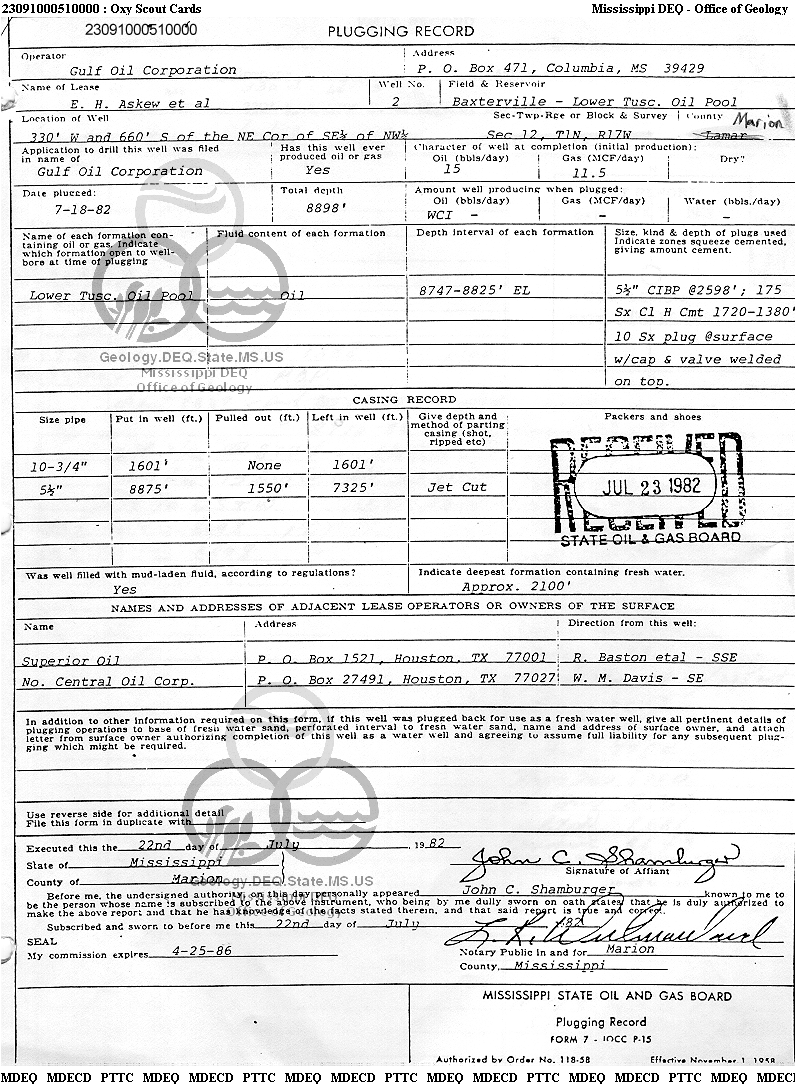 23091000510000 : Oxy Scout Cards Mississippi DEQ - Office of Geology
23091000510000 PLUGGING RECORD
Operator Address
Gulf Oil Corporation P. O. Box 471, Columbia, MS 39429
Name of Lease Well No. Field & Reservoir
E. H. Askew et al 2 Baxterville - Lower Tusc. Oil Pool
Location of Well Sec-Twp-Rge or Block & Survey County Marion
330' W and 660' S of the NE Cor of SE¼ of NW¼ Sec 12, T1N, R17W Lamar
Application to drill this well was filed in name of Has this well ever produced oil or gas Character of well at completion (initial production):
Oil (bbls/day) Gas (MCF/day) Dry?
Gulf Oil Corporation Yes 15 11.5
Date plugged: Total depth Amount well producing when plugged:
Oil (bbls/day) Gas (MCF/day) Water (bbls./day)
7-18-82 8898' WCI - - -
Name of each formation containing oil or gas. Indicate which formation open to wellbore at time of plugging Fluid content of each formation Depth interval of each formation Size, kind & depth of plugs used Indicate zones squeeze cemented, giving amount cement.
Lower Tusc. Oil Pool Oil 8747-8825' EL 5½" CIBP @2598'; 175
Sx Cl H Cmt 1720-1380'
10 Sx plug @surface
w/cap & valve welded
on top.
Geology.DEQ.State.MS.US
Mississippi DEQ
Office of Geology
CASING RECORD
Size pipe Put in well (ft.) Pulled out (ft.) Left in well (ft.) Give depth and method of parting casing (shot, ripped etc) Packers and shoes
10-3/4" 1601' None 1601'
5½" 8875' 1550' 7325' Jet Cut
RECEIVED
JUL 23 1982
STATE OIL & GAS BOARD
Was well filled with mud-laden fluid, according to regulations? Indicate deepest formation containing fresh water.
Yes Approx. 2100'
NAMES AND ADDRESSES OF ADJACENT LEASE OPERATORS OR OWNERS OF THE SURFACE
Name Address Direction from this well:
Superior Oil P. O. Box 1521, Houston, TX 77001 R. Baston etal - SSE
No. Central Oil Corp. P. O. Box 27491, Houston, TX 77027 W. M. Davis - SE
In addition to other information required on this form, if this well was plugged back for use as a fresh water well, give all pertinent details of
plugging operations to base of fresh water sand, perforated interval to fresh water sand, name and address of surface owner, and attach
letter from surface owner authorizing completion of this well as a water well and agreeing to assume full liability for any subsequent plug-
ging which might be required.
Use reverse side for additional detail
File this form in duplicate with
Executed this the 22nd day of July , 1982
State of Mississippi John C. Shamburger
Signature of Affiant
County of Marion
Geology.DEQ.State.MS.US
Before me, the undersigned authority, on this day personally appeared John C. Shamburger known to me to
be the person whose name is subscribed to the above instrument, who being by me dully sworn on oath states, that he is duly authorized to
make the above report and that he has knowledge of the facts stated therein, and that said report is true and correct.
Subscribed and sworn to before me this 22nd day of July , 1982
SEAL
My commission expires 4-25-86 Notary Public in and for Marion
County, Mississippi
MISSISSIPPI STATE OIL AND GAS BOARD
Plugging Record
FORM 7 - IOCC P-15
Authorized by Order No. 118-58 Effective November 1, 1958
MDEQ MDECD PTTC MDEQ MDECD PTTC MDEQ MDECD PTTC MDEQ MDECD PTTC MDEQ MDECD PTTC MDEQ MDEC